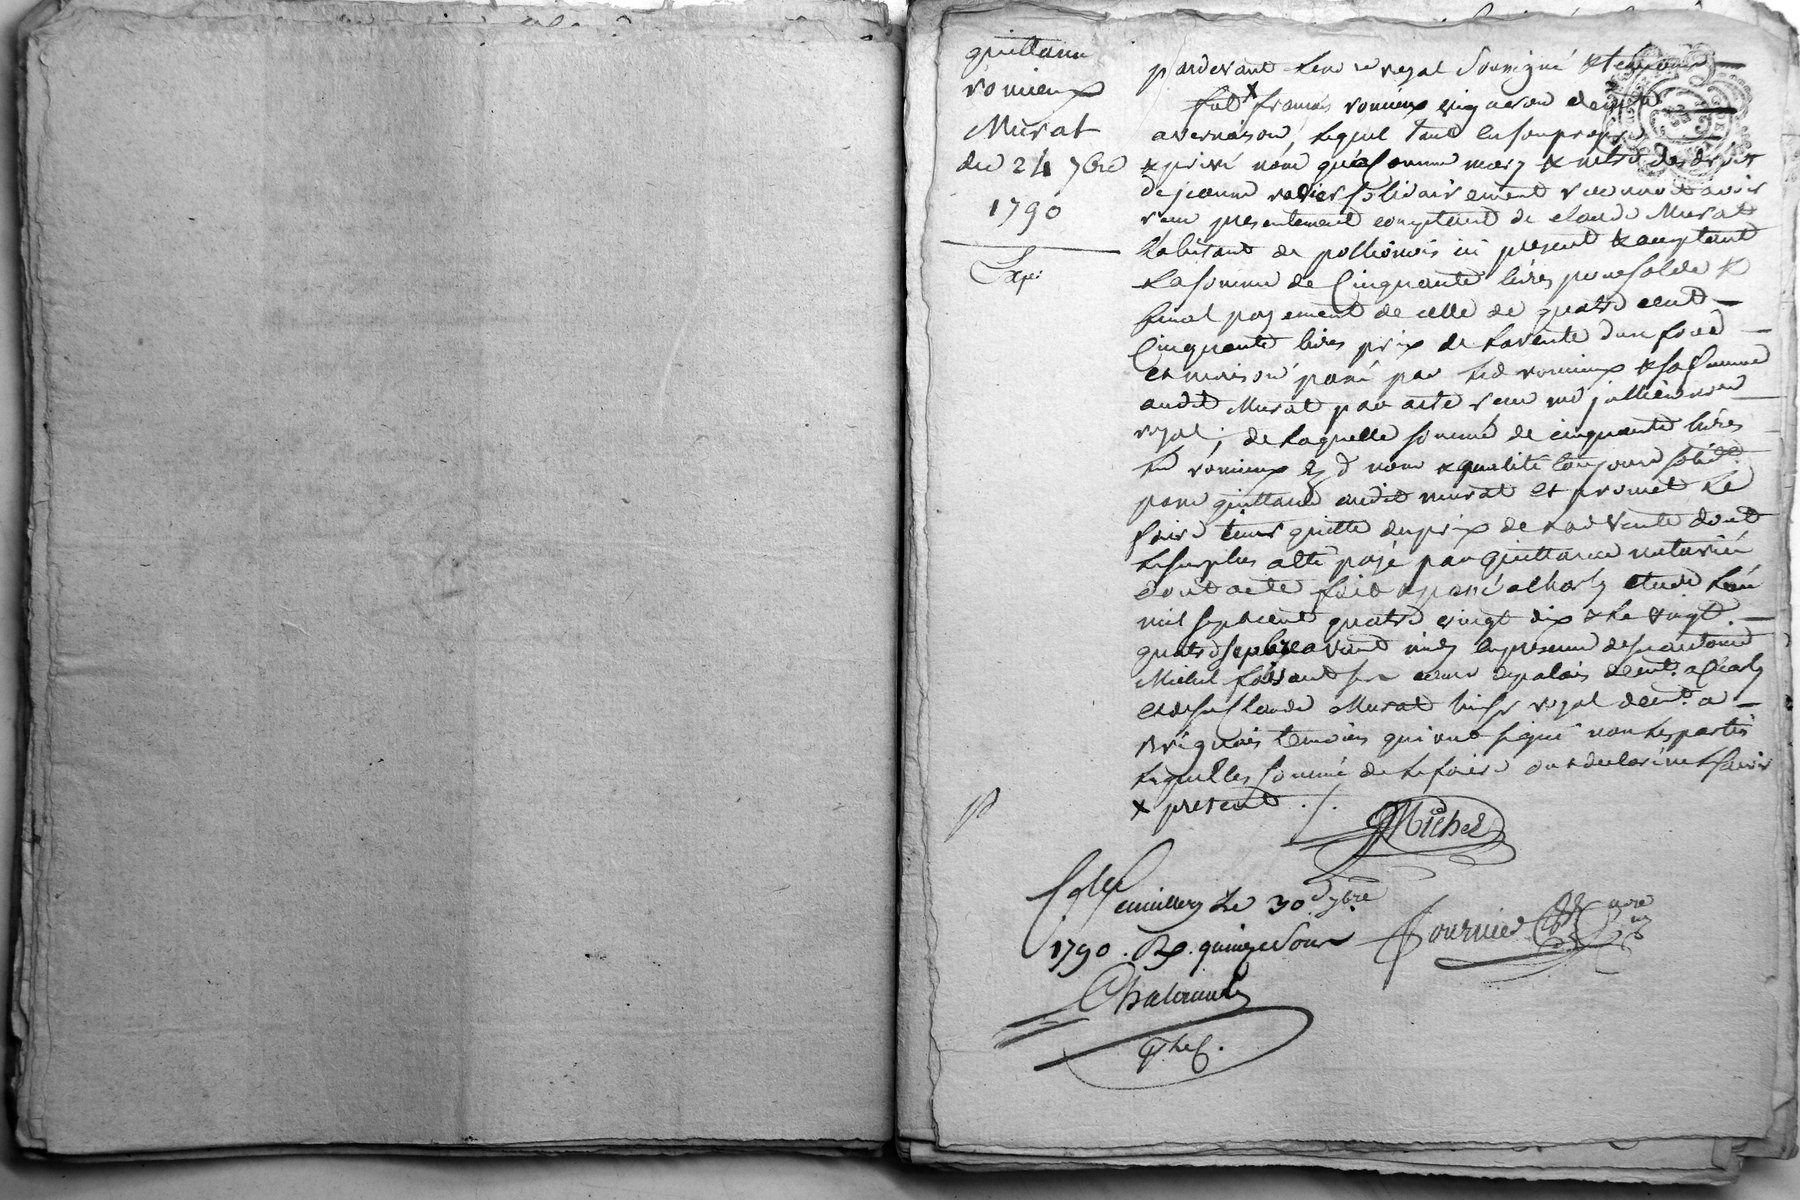 quittance
romieux
Murat
du 24 7bre
1790
Exp:
pardevant le no.re royal soussigné & témoins
fut x françois romieux vigneron demt a
avernaison, lequel tant en son propre
& privé nom que comme mary & mtre des droits
de jeanne solidairement reconnoit avoir
reçu presentement comptant de claude Murat
habitant de pollionais ici present & acceptant
la somme de Cinquante livres pour solde &
final payement de celle de quatre cent
Cinquante livres prix de la vente d'un fond
et maison passé par led romieux & sa femme
audit Murat par acte reçu me jullien nore
royal; de laquelle somme de cinquante livres
led romieux nom & qualité toujours solide
passe quittance audit murat et promet le
faire tenir quitte du prix de lad vente dont
le surplus a été payé par quittance notariée
dont acte fait & passé a Charly etude l'an
mil sept cent quatre vingt dix & le vingt
quatre septbre avant midy en presence de sr antoine
Michel demt a Charly
et de sr Claude Murat huissr royal demt a
brignais temoins qui ont signé non les parties
lesquelles sommé de le faire ont declaré ne savoir
x present ./.
Michel
Colle a millery le 30 7bre
1790. R. quinze sous
Fournier nore